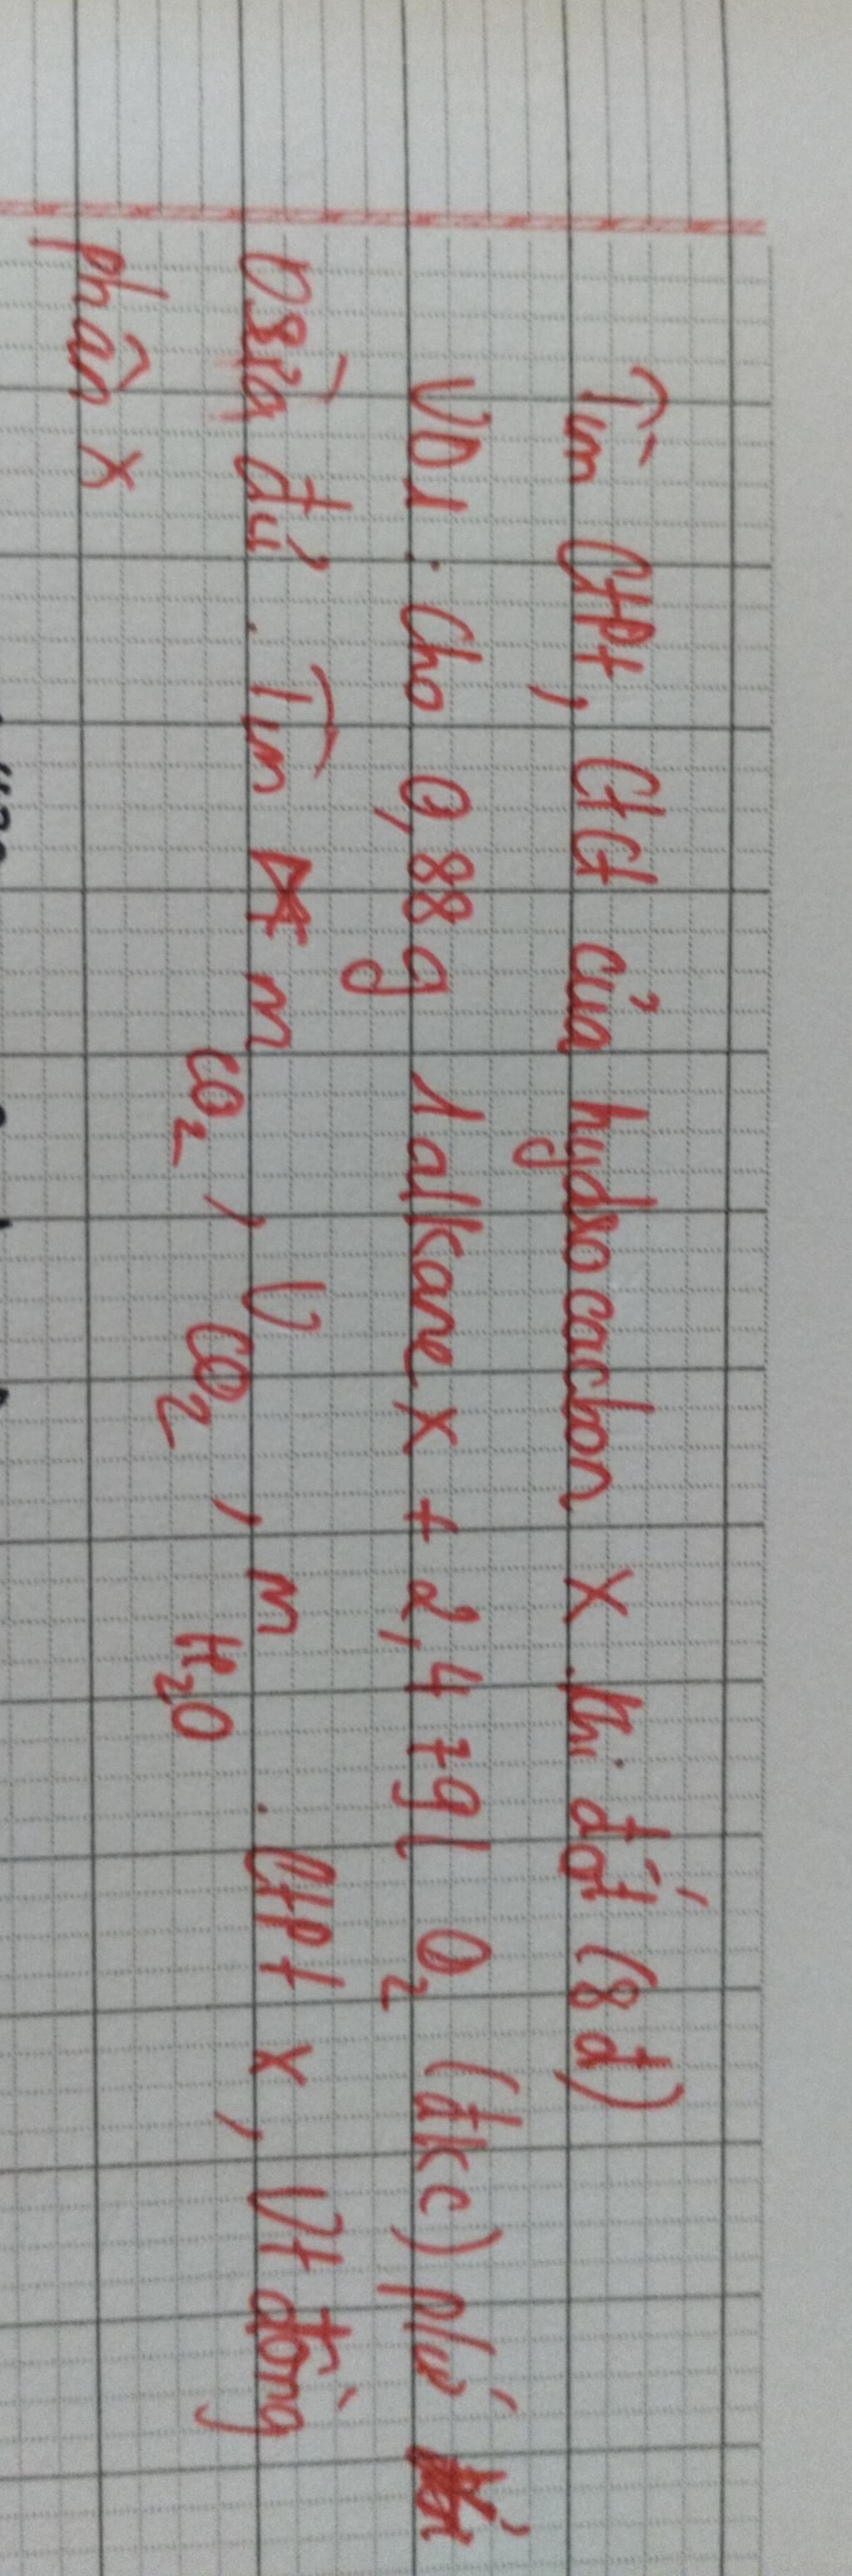 Tìm CTPt, CTCT của hydrocacbon X khi đốt (8đ)
VD1: Cho 0,88g 1 alkane X + 2,479l O2 (đkc) p/ư
vừa đủ. Tìm m CO2, V CO2, m H2O. CTPt X, Vt đồng
phân X